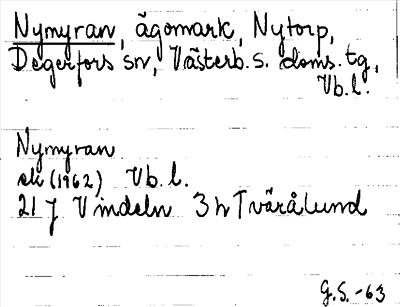 Nymyran, ägomark, Nytorp,
Degerfors sn, Västerb. s. doms. tg,
Vb. l.
Nymyran
ek (1962) Vb. l.
21 J Vindeln 3 h Tvärålund
G.S. -63